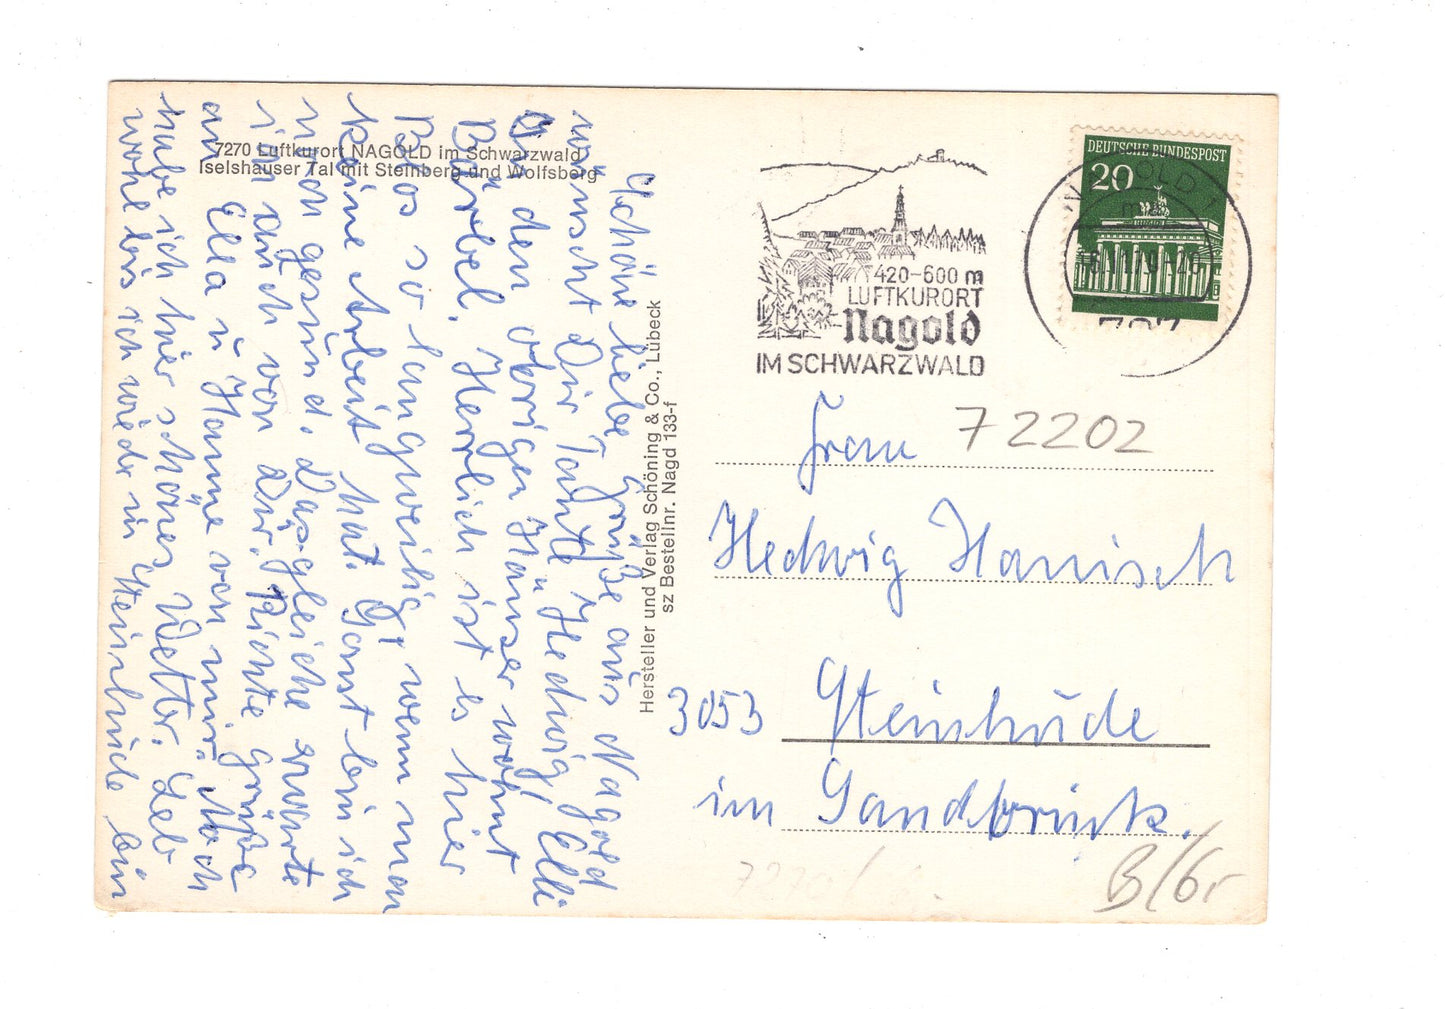 7270 Luftkurort NAGOLD im Schwarzwald
Iselshauser Tal mit Steinberg und Wolfsberg
Schöne liebe Grüße aus Nagold
wünscht Dir Tante Hedwig! Elli
den obrigen Hauser wohnt
Bärbel. Herrlich ist es hier
Blos so langweilig, wenn man
keine Arbeit hat. Sonst bin ich
noch gesund. Dasgleiche erwarte
ich auch von Dir. Richte Grüße
an Ella u Hanne von mir. Noch
habe ich hier schönes Wetter. Leb
wohl bis ich wieder in Steinhude bin
Hersteller und Verlag Schöning & Co., Lübeck
sz Bestellnr. Nagd 133-f
420-600 m
LUFTKURORT
Nagold
IM SCHWARZWALD
DEUTSCHE BUNDESPOST
20
NAGOLD 1
727
72202
Frau
Hedwig Hanisch
3053 Steinhude
im Sandbrink.
B/6,-